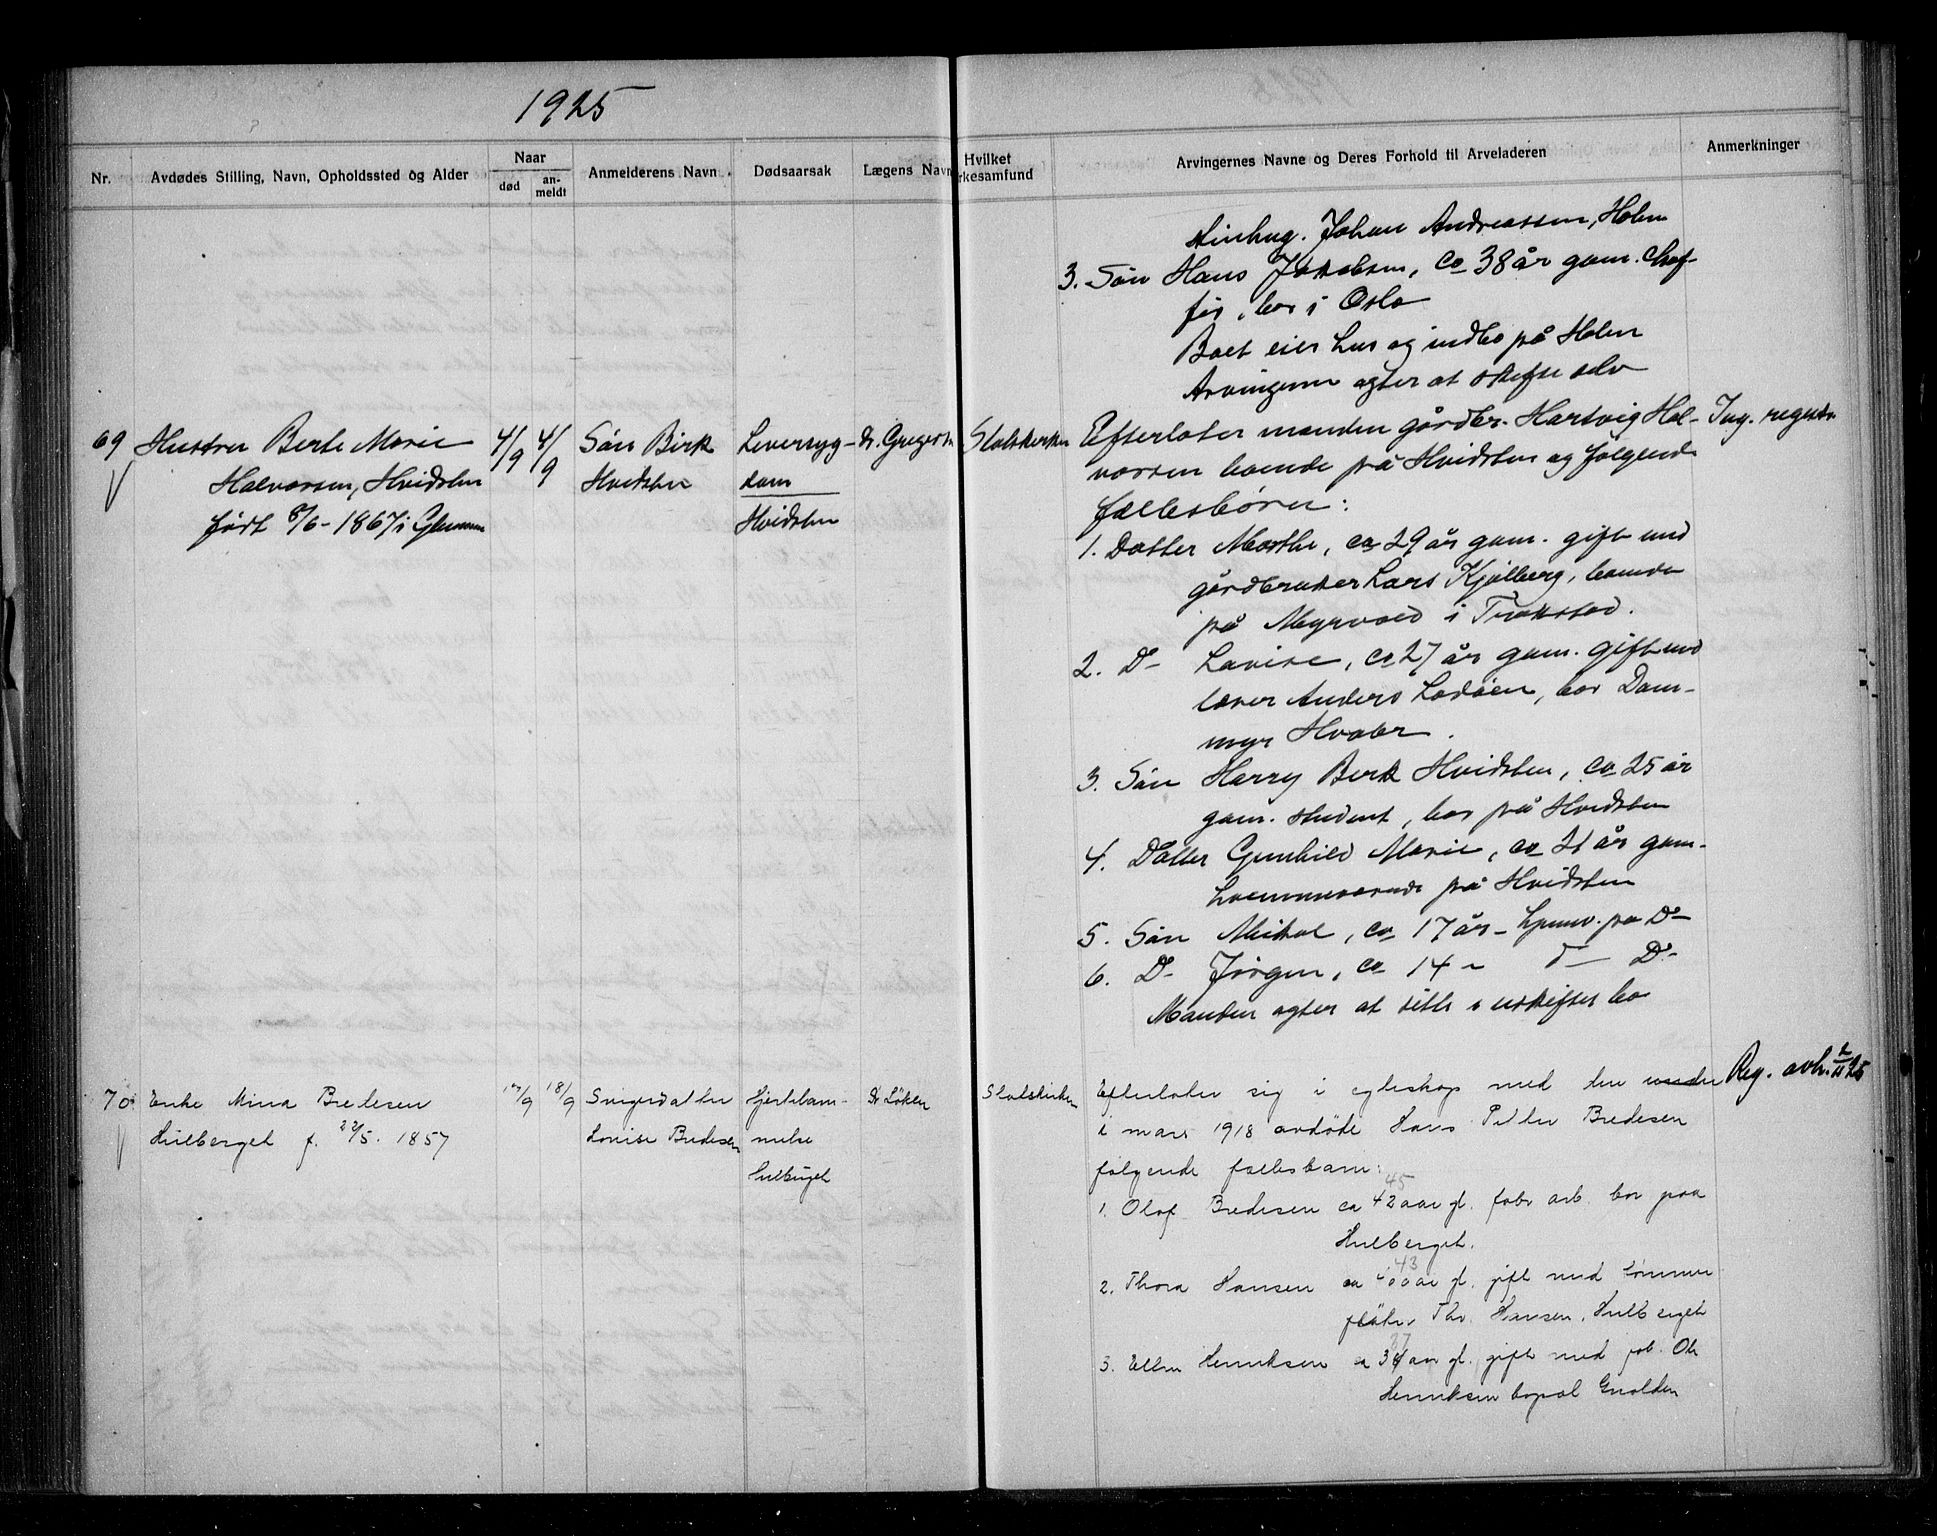 1925
Nr.
Avdødes Stilling, Navn, Opholdssted og Alder
Naar
død
an-
meldt
Anmelderens Navn
Dødsaarsak
Lægens Navn
Hvilket
rkesamfund
Arvingernes Navne og Deres Forhold til Arveladeren
Anmerkninger
stinhug. Johan Andreassen, Holm
3. Søn Hans Jakobsen, ca 38 år gam. chaf-
før, bor i Oslo
Boet eier hus og indbo på Holm
Arvingerne agter at skifte selv
69
Hustru Berte Marie
Halvorsen, Hvidsten
født 8/6-1867 i Glemmen
4/9
4/9
Søn Birk
Hvidsten
Leversyg-
dom
Hvidsten
Dr. Gregersen
Statskirken
Efterlater manden gårdbr. Hartvig Hal-
vorsen boende på Hvidsten og følgende
fællesbörn:
Ing. registr.
1. Datter Marthe, ca 29 år gam. gift med
gårdbruker Lars Kjølberg, boende
på Myrvold i Trøkstad.
2. Do Lovise, ca 27 år gam. gift med
lærer Anders Lodøen, bor Dam-
myr Hvaler.
3. Søn Harry Berk Hvidsten, ca 25 år
gam. student, bor på Hvidsten
4. Datter Gunhild Marie, ca 21 år gam.
hjemmeværende på Hvidsten
5. Søn Mikal, ca 17 år - hjemv. på Do
6. Do Jörgen, ca 14 - d - Do
Manden agter at sitte i uskiftet bo
70
Enke Mina Bredesen
Hulberget f. 22/5. 1857
17/9
18/9
Svigerdatter
Lovise Bredesen
Hjertelam-
melse
Hulberget
Dr Løken
Statskirken
Efterlater sig i egteskap med den under
i mars 1918 avdöde Hans Petter Bredesen
følgende fællesbarn:
Reg. avh. 2/11 25
1. Olaf Bredesen ca 42 45 aar gl. fabr arb. bor paa
Hulberget.
2. Thora Hansen ca 40 43 aar gl. gift med tömmer
fløter Thv. Hansen, Hulberget
3. Ellen Henriksen ca 34 37 aar gl. gift med fab. Ole
Henriksen bopæl Gnalden